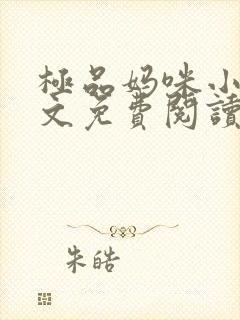 極品妈咪小
文免費閱讀
朱皓